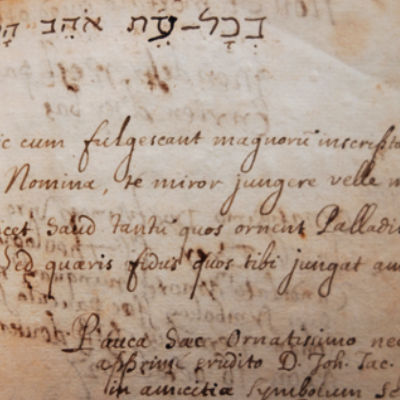 בְּכָל־עֵת אֹהֵב הָ
ic cum fulgescant magnorū inscripto
Nomina, te miror jungere velle m
cet haud tantū quos ornent Palladi
Sed quæris fidus quos tibi jungat am
Pauca hæc Ornatissimo nec
apprimè erudito D. Joh. Jac.
in amicitiæ symbolum sc